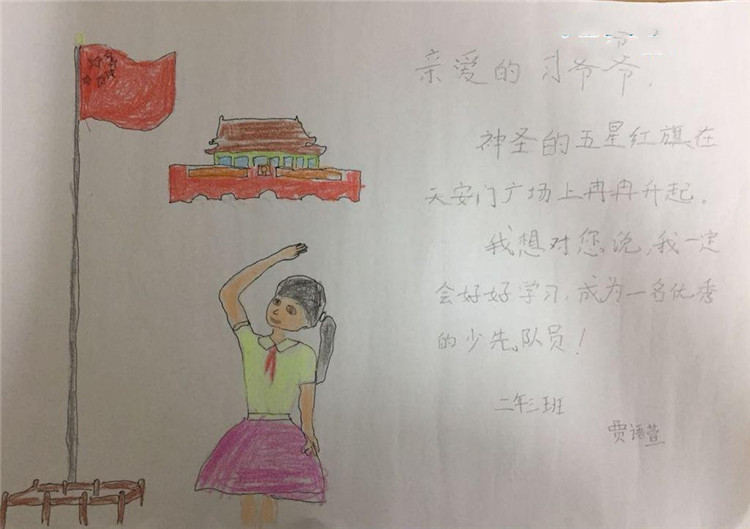 亲爱的习爷爷,
神圣的五星红旗在
天安门广场上冉冉升起。
我想对您说,我一定
会好好学习,成为一名优秀
的少先队员!
二年三班
贾语萱